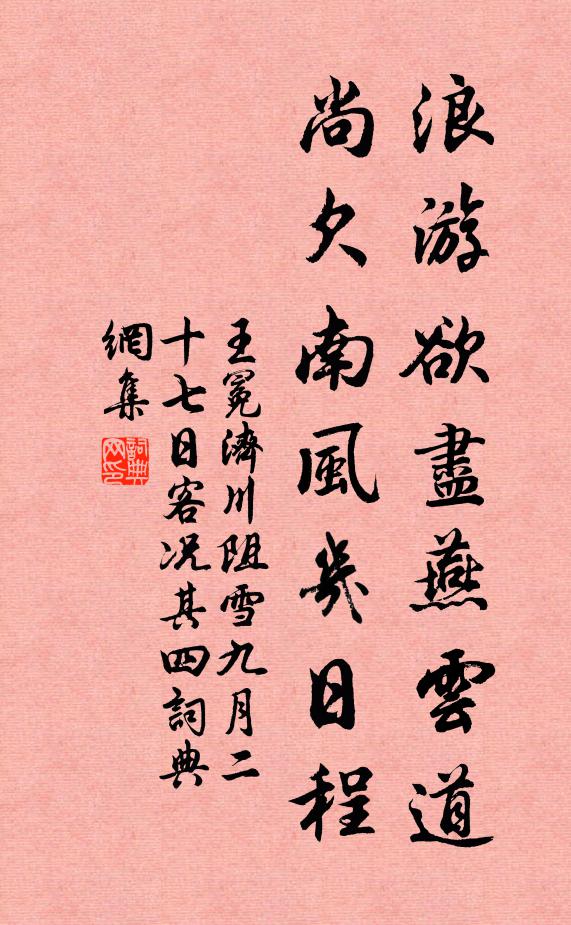 浪游欲盡燕雲道
尚欠南風幾日程
王冕濟川阻雪九月二
十七日客况其四詞典
網集
詞典网印